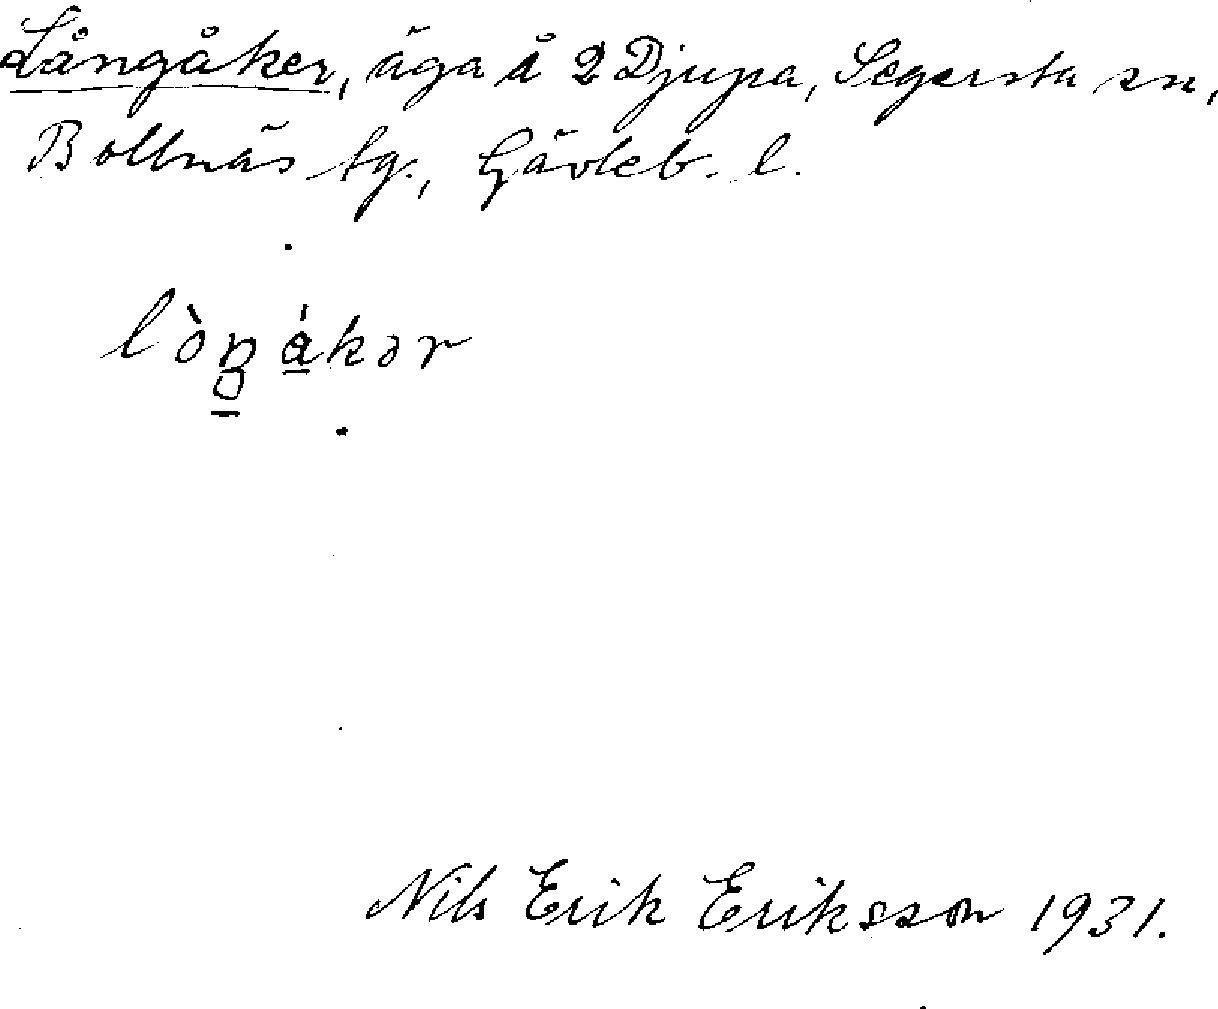 Långåker, äga å 2 Djupa, Segersta sn,
Bollnäs tg., Gävleb. l.
lòŋákər
Nils Erik Eriksson 1931.